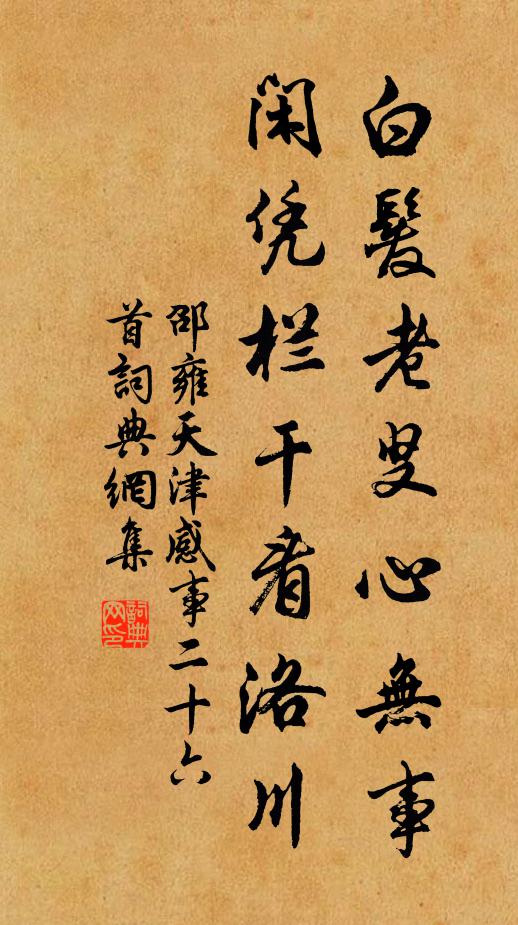 白髮老叟心無事
閑凭栏干看洛川
邵雍天津感事二十六
首詞典網集
詞典
网印